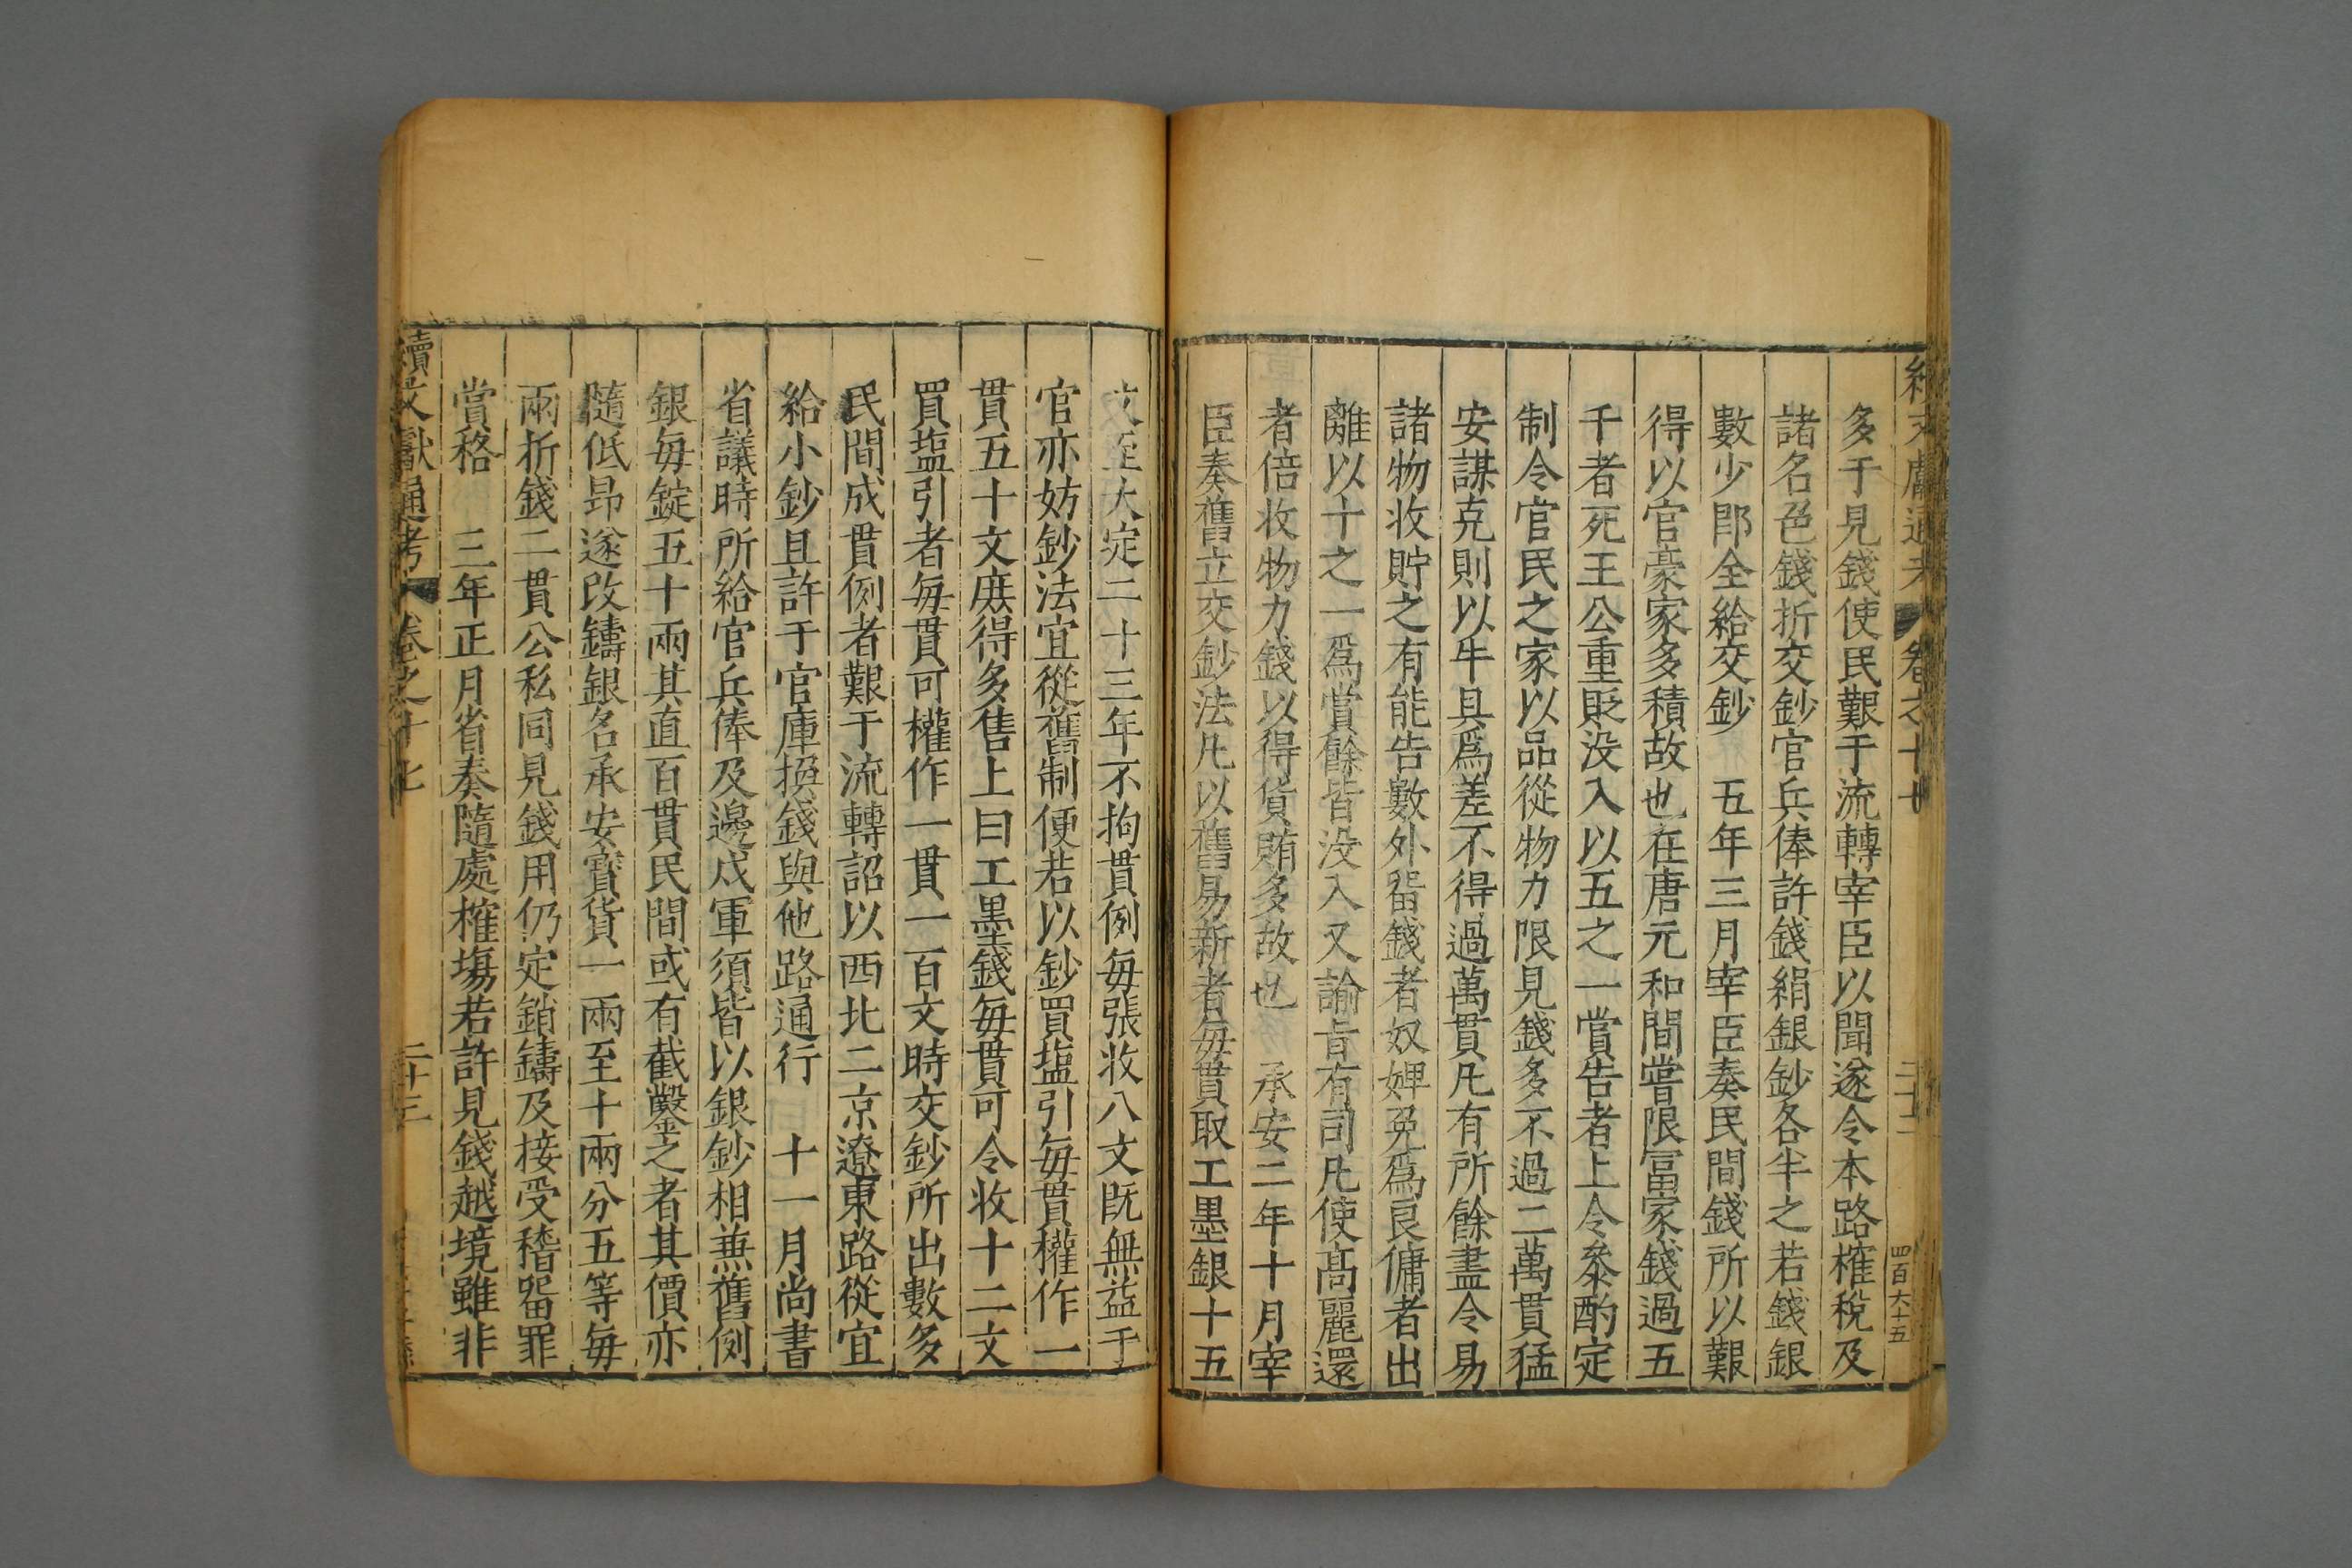 文獻通考 卷之十七
四百六十五
多于見錢使民艱于流轉宰臣以聞遂令本路榷稅及
諸名色錢折交鈔官兵俸許錢絹銀鈔各半之若錢銀
數少卽全給交鈔 五年三月宰臣奏民間錢所以艱
得以官豪家多積故也在唐元和間嘗限富家錢過五
千者死王公重貶没入以五之一賞告者上令叅酌定
制令官民之家以品從物力限見錢多不過二萬貫猛
安謀克則以牛具爲差不得過萬貫凡有所餘盡令易
諸物收貯之有能告數外畱錢者奴婢免爲良傭者出
離以十之一爲賞餘皆没入又諭旨有司凡使高麗還
者倍收物力錢以得貨賄多故也 承安二年十月宰
臣奏舊立交鈔法凡以舊易新者每貫取工墨銀十五
文至大定二十三年不拘貫例每張收八文既無益于
官亦妨鈔法宜從舊制便若以鈔買塩引每貫權作一
貫五十文庶得多售上曰工墨錢每貫可令收十二文
買塩引者每貫可權作一貫一百文時交鈔所出數多
民間成貫例者艱于流轉詔以西北二京遼東路從宜
給小鈔且許于官庫換錢與他路通行 十一月尚書
省議時所給官兵俸及邊戍軍須皆以銀鈔相兼舊例
銀每錠五十兩其直百貫民間或有截鑿之者其價亦
隨低昂遂改鑄銀名承安寳貨一兩至十兩分五等每
兩折錢二貫公私同見錢用仍定銷鑄及接受稽畱罪
賞格 三年正月省奏隨處榷塲若許見錢越境雖非
續文獻通考 卷之十七 二十三